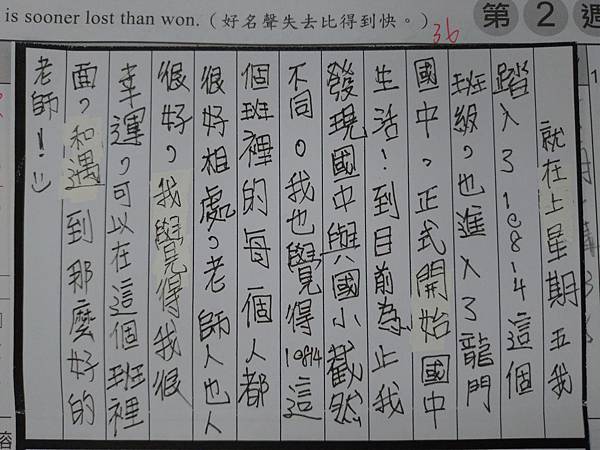 is sooner lost than won.（好名聲失去比得到快。）
36
第2週
就在上星期五我
踏入了10814這個
班級，也進入了龍門
國中，正式開始國中
生活！到目前為止我
發現國中與國小截然
不同。我也覺得10814這
個班裡的每一個人都
很好相處，老師人也人
很好，我覺得我很
幸運，可以在這個班裡
面，和遇到那麼好的
老師！